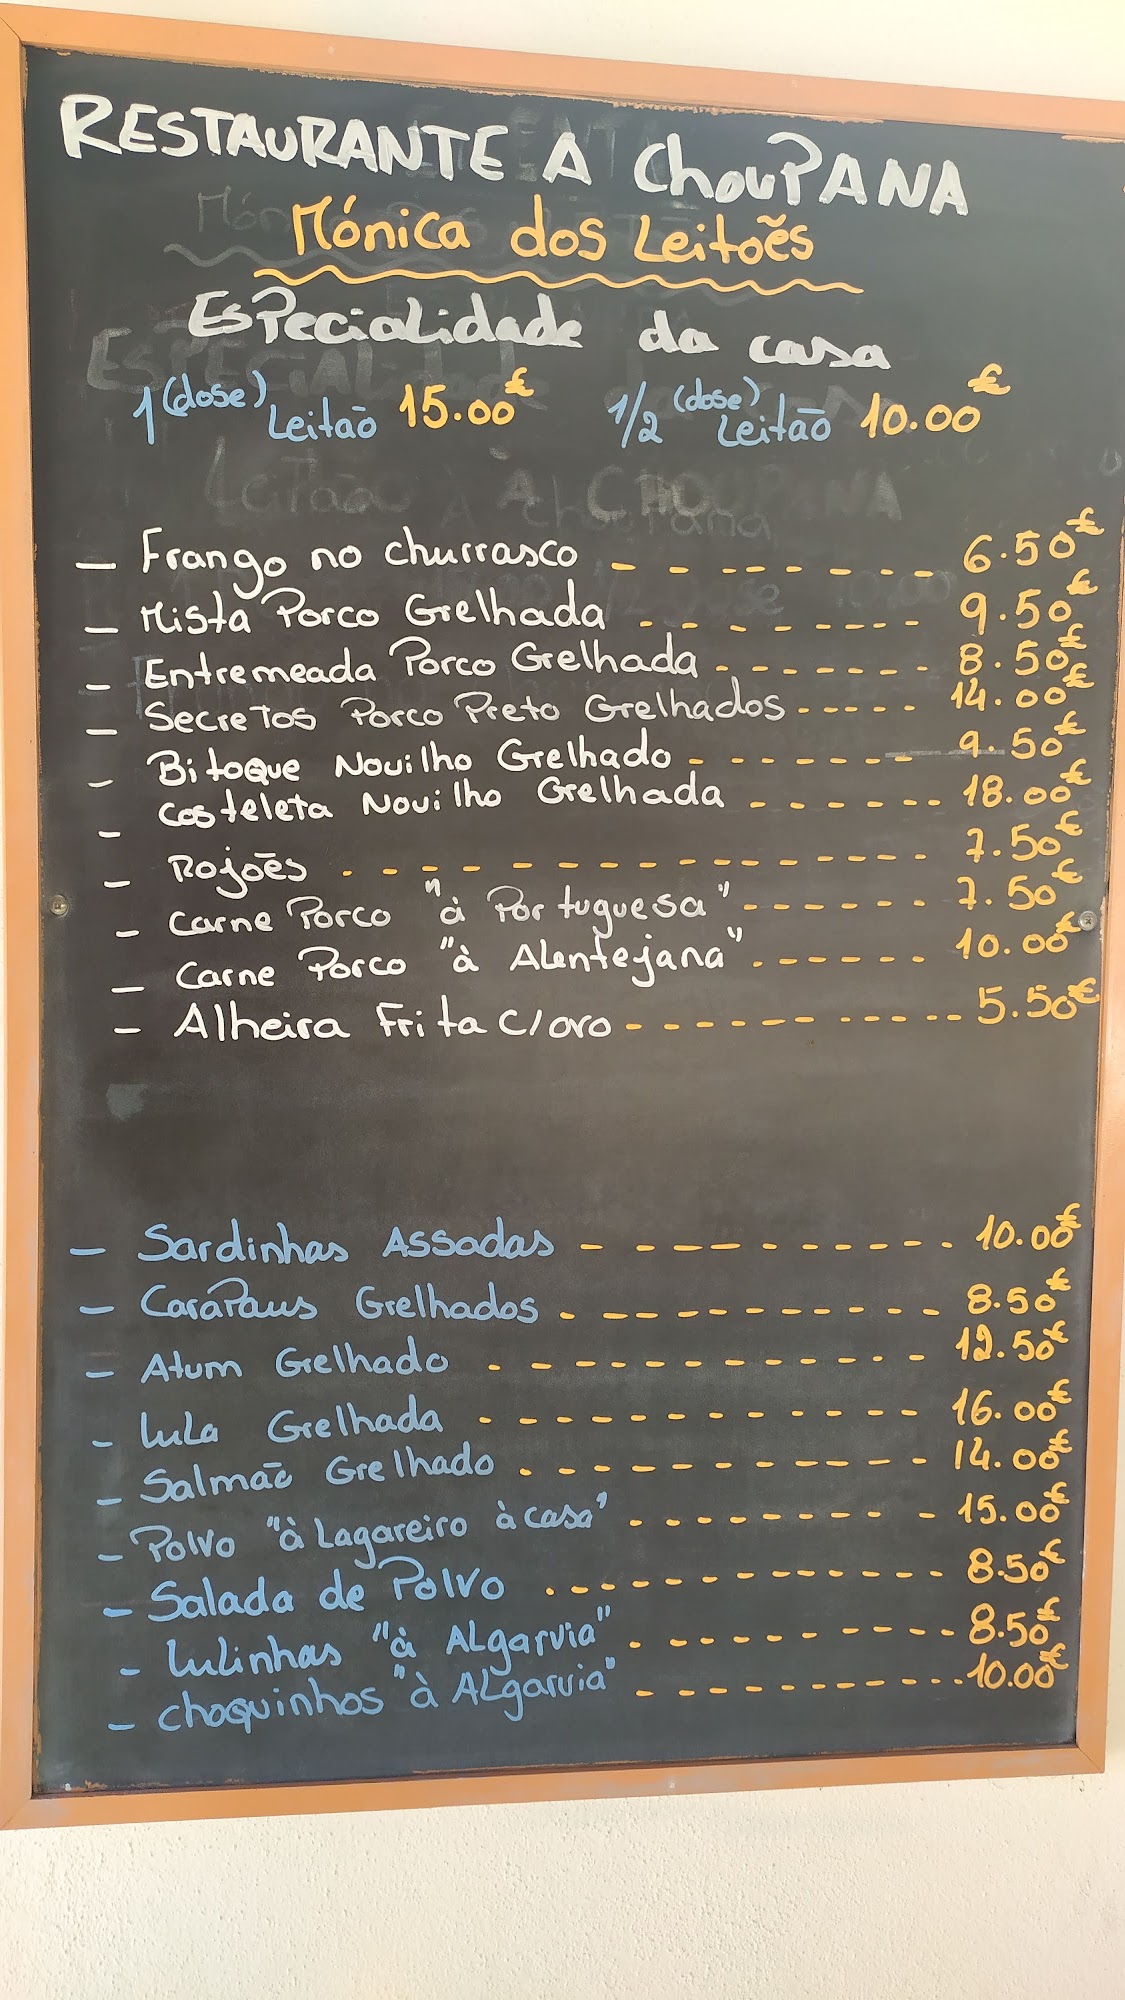 RESTAURANTE A ChouPANA
Mónica dos Leitoẽs
EsPecialidade da casa
1 (dose) Leitão 15.00€ 1/2 (dose) Leitão 10.00€
- Frango no churrasco - - - - - - - - - 6.50€
- Mista Porco Grelhada - - - - - - - - 9.50€
- Entremeada Porco Grelhada - - - - - - - 8.50€
- Secretos Porco Preto Grelhados - - - - - 14.00€
- Bitoque Novilho Grelhado - - - - - - - 9.50€
- Costeleta Novilho Grelhada - - - - - - - 18.00€
- Rojoẽs - - - - - - - - - - - - - - - - 7.50€
- Carne Porco "à Portuguesa" - - - - - - - 7.50€
- Carne Porco "à Alentejana" - - - - - - 10.00€
- Alheira Frita C/ovo - - - - - - - - - - - 5.50€
- Sardinhas Assadas - - - - - - - - - - - 10.00€
- CaraPaus Grelhados - - - - - - - - - - - 8.50€
- Atum Grelhado - - - - - - - - - - - - 12.50€
- Lula Grelhada - - - - - - - - - - - - 16.00€
- Salmão Grelhado - - - - - - - - - - - - 14.00€
- Polvo "à Lagareiro à casa" - - - - - - - - - 15.00€
- Salada de Polvo - - - - - - - - - - - - - 8.50€
- Lulinhas "à Algarvia" - - - - - - - - - - 8.50€
- choquinhos "à Algarvia" - - - - - - - - - - - 10.00€